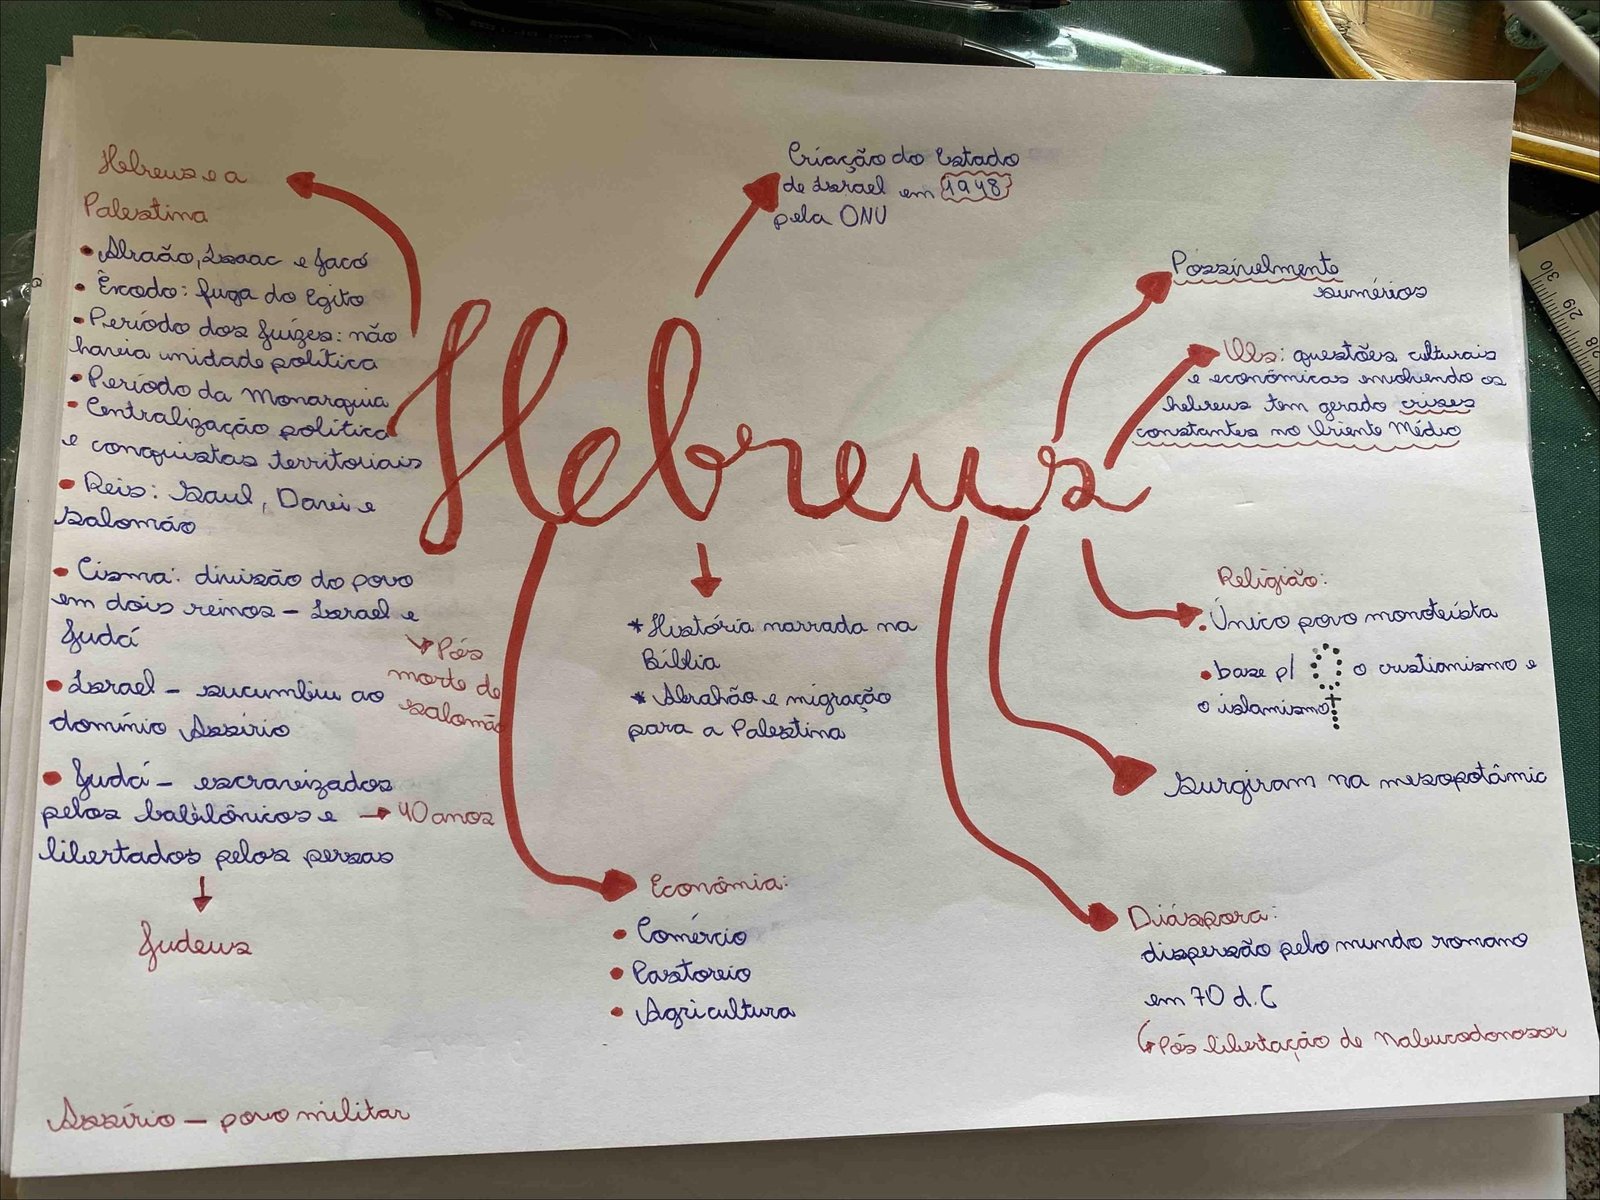 Hebreus e a
Palestina
• Abraão, Isaac e Jacó
• Êxodo: fuga do Egito
• Período dos Juízes: não
havia unidade política
• Período da Monarquia
- Centralização política
e conquistas territoriais
• Reis: Saul, Davi e
Salomão
• Cisma: divisão do povo
em dois reinos - Israel e
Judá
Pós
morte de
Salomão
• Israel - sucumbiu ao
domínio Assírio
• Judá - escraveizados
pelos babilônicos e → 40 anos
libertados pelos persas
Judeus
Assírio - povo militar
Criação do Estado
de Israel em 1948
pela ONU
Hebreus
* História narrada na
Bíblia
* Abrahão e migração
para a Palestina
Econômia:
• Comércio
• Pastoreio
• Agricultura
Possivelmente
sumérios
Obs: questões culturais
e econômicas envolvendo os
hebreus tem gerado crises
constantes no Oriente Médio
Religião:
• Único povo monoteísta
• base p/ o cristianismo e
o islamismo
Surgiram na mesopotâmic
Diáspora:
dispersão pelo mundo romano
em 70 d.C
Pós libertação de Nabucodonosor
30
29
28